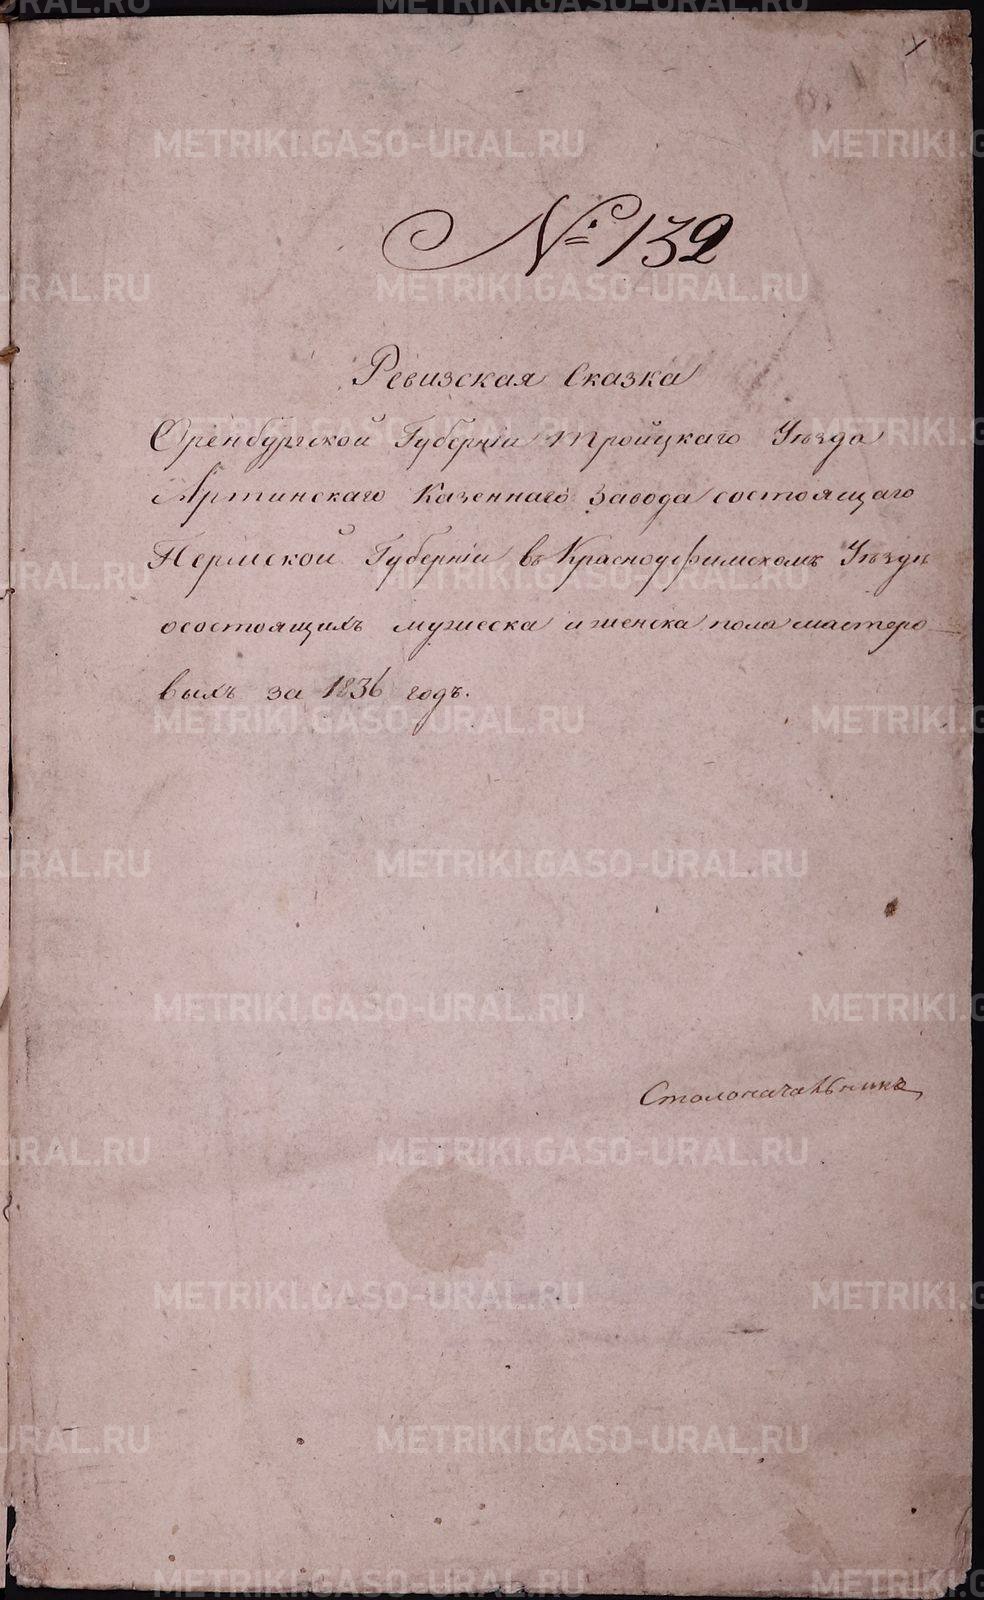 № 132
Ревизская Сказка
Оренбургской Губернiи Тройцкаго Уѣзда
Артинскаго Казеннаго Завода состоящаго
Пермской Губернiи въ Красноуфимскомъ Уѣздѣ
осостоящихъ мужеска и женска пола мастеро-
выхъ за 1836 годъ.
Столоначальникъ
METRIKI.GASO-URAL.RU